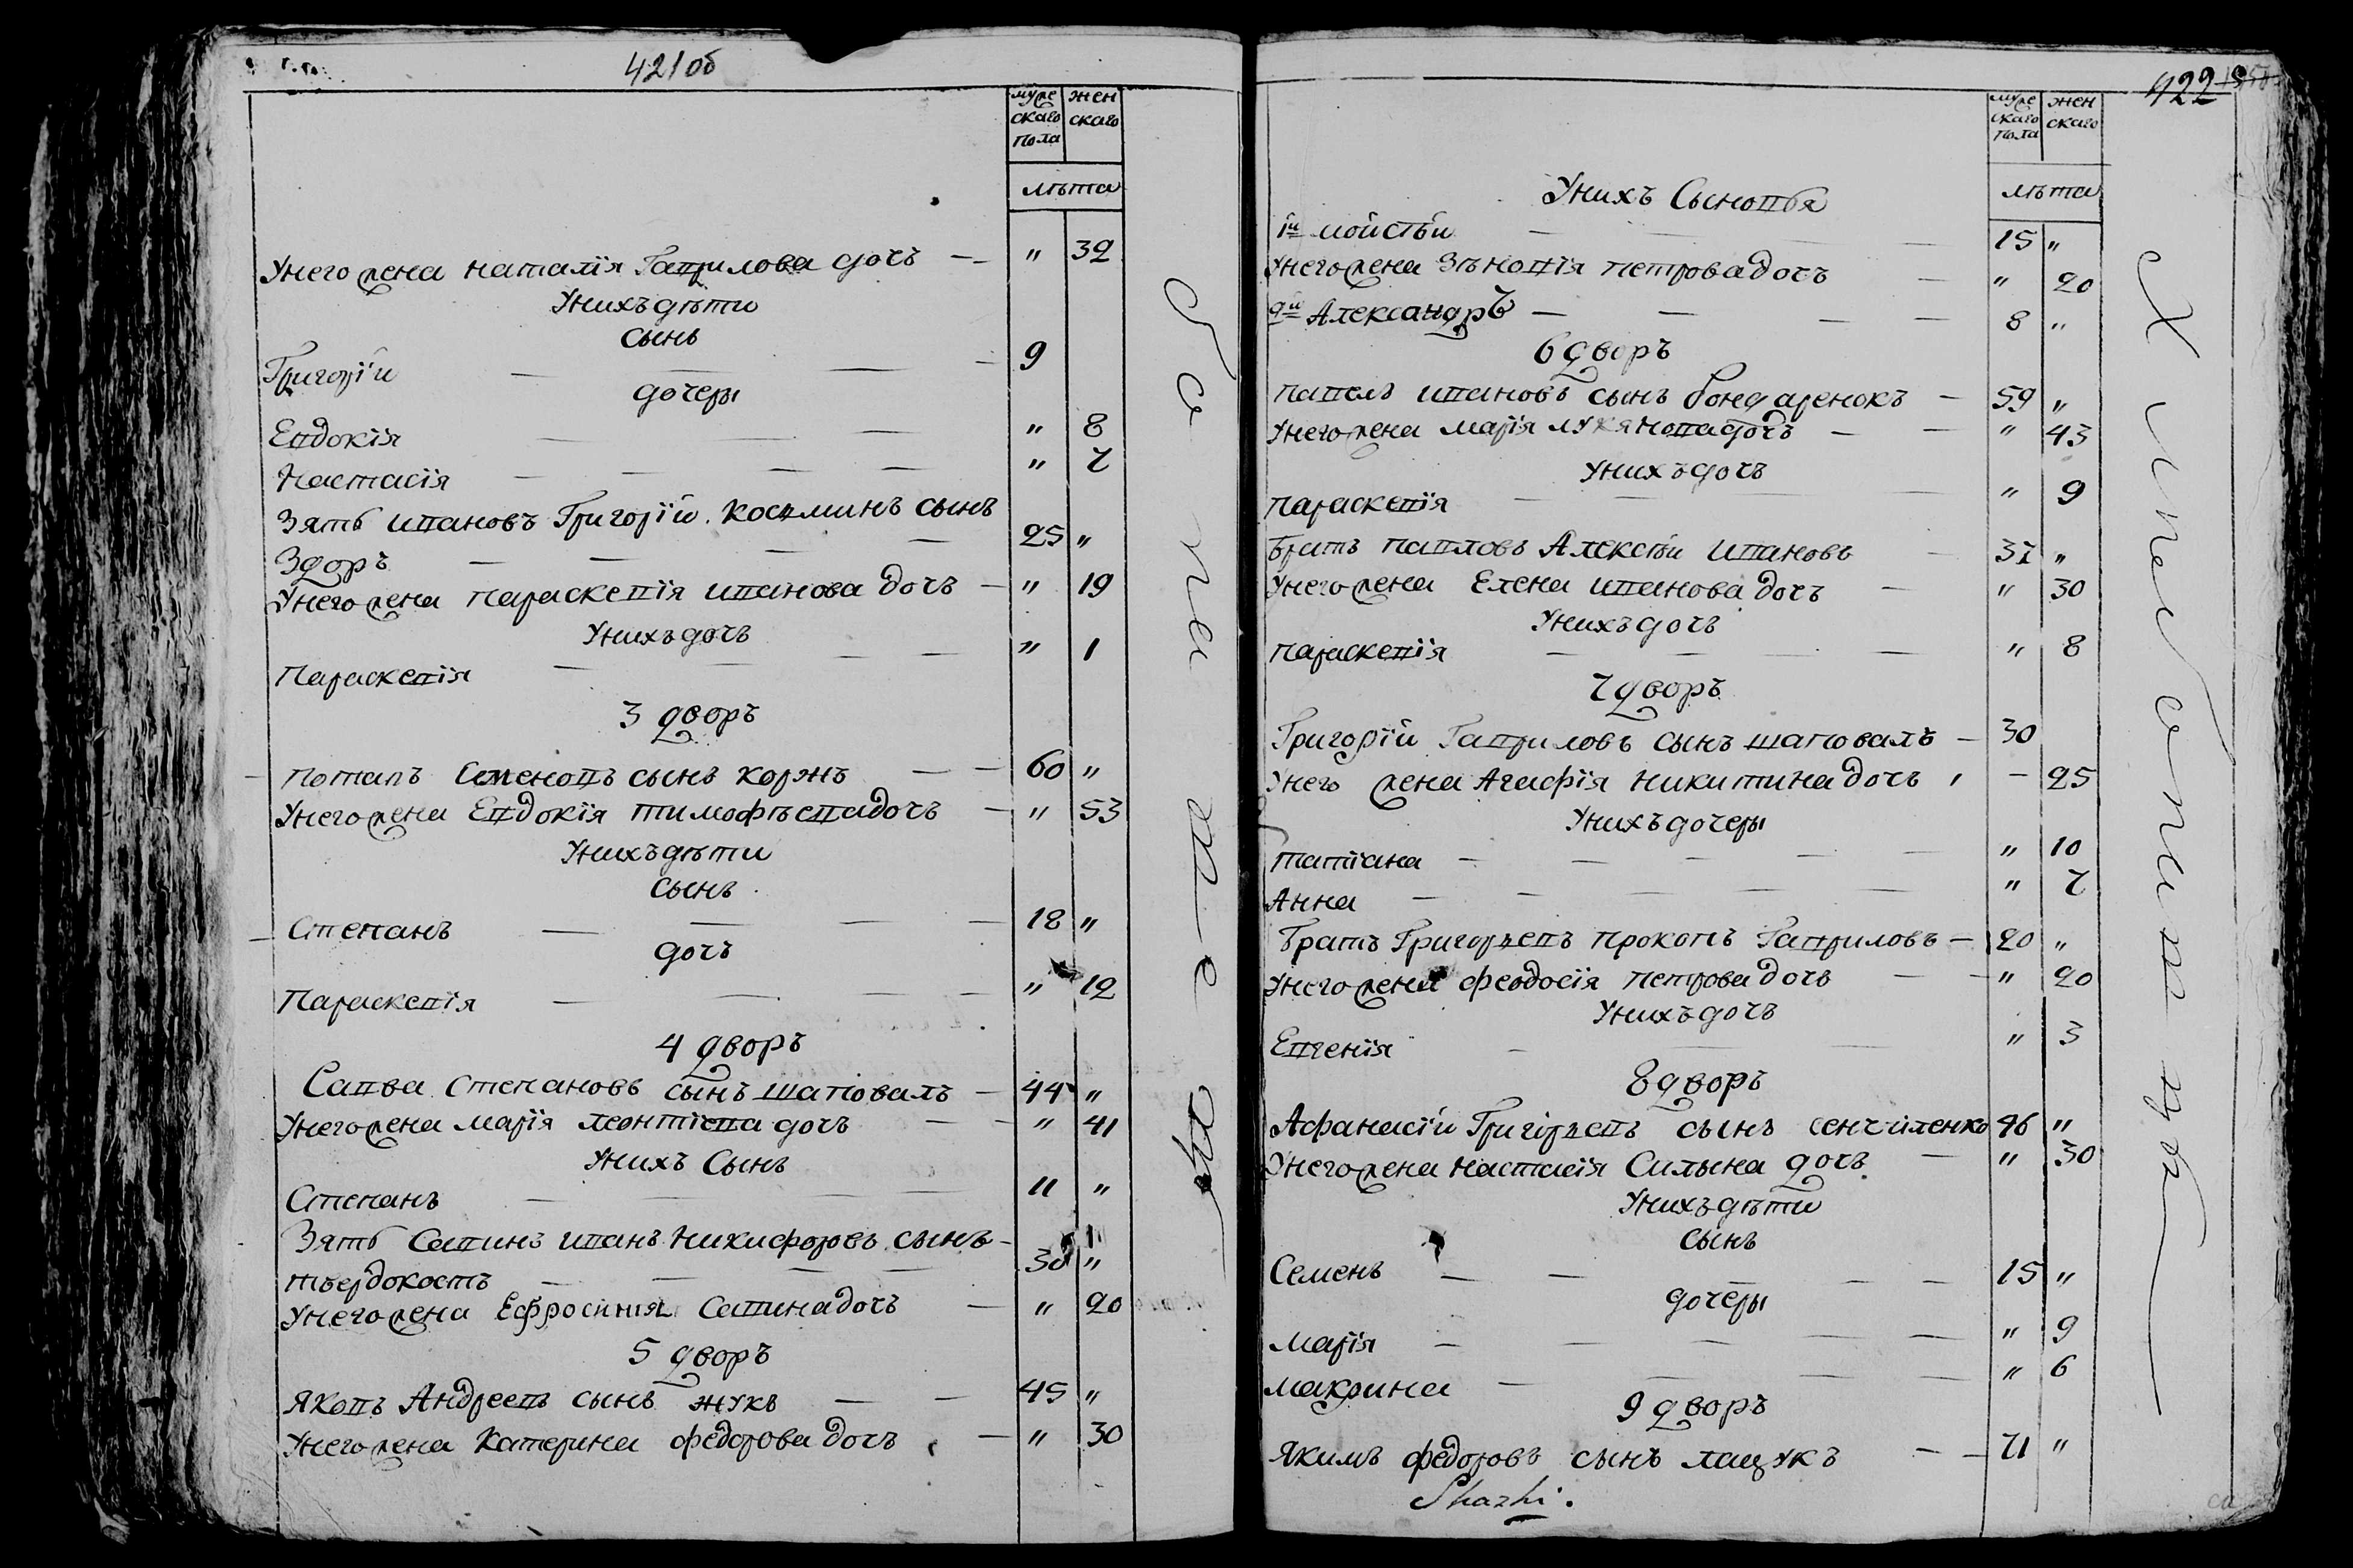 421об
муже жен
скаго скаго
пола
лѣта
Унего жена наталія Гаврилова дочь — — " 32
Унихъ дѣти
сынъ
Григорій — — — — 9
дочеры
Евдокія — — — " 8
Настасія — — — — " 7
Зять ивановъ Григорій Космминъ сынъ
Здоръ — — — — 25 "
Унего жена параскевія иванова дочь — " 19
Унихъ дочь
Параскевія — — — " 1
3 дворъ
потапъ Семеновъ сынъ коржъ — — 60 "
Унего жена Евдокія тимофѣева дочь — " 53
Унихъ дѣти
сынъ
Степанъ — — — — 18 "
дочь
Параскевія — — — — " 12
4 дворъ
Савва Степановъ сынъ шаповалъ — 44 "
Унего жена марія леонтіева дочь — — " 41
Унихъ Сынъ
Степанъ — — — — 11 "
Зять Савинъ иванъ Никифоровъ сынъ —
твердокость — — — — 30 "
Унего жена Ефросинія Савина дочь — " 20
5 дворъ
Яковъ Андреевъ сынъ жукъ — — 45 "
Унего жена Катерина федорова дочь — " 30
422
муже жен
скаго скаго
пола
лѣта
Унихъ Сыновья
1й мойсѣй — — — 15 "
Унего жена Зѣновія петрова дочь — " 20
2й Александръ — — — — 8 "
6 дворъ
павелъ ивановъ сынъ бондаренокъ — 59 "
Унего жена марія лукянова дочь — — " 43
Унихъ дочь
параскевія — — — " 9
братъ павловъ Алексѣй ивановъ — 37 "
Унего жена Елена иванова дочь — " 30
Унихъ дочь
параскевія — — — — " 8
7 дворъ
Григорій Гавриловъ сынъ шаповалъ — 30
Унего жена Агафія никитина дочь — 25
Унихъ дочеры
татіана — — — — — " 10
Анна — — — — — " 7
Братъ Григорьевъ прокопъ Гавриловъ — 20 "
Унего жена феодосія петрова дочь — — " 20
Унихъ дочь
Евгенія — — — " 3
8 дворъ
Афанасій Григорьевъ сынъ сенчиленко 46 "
Унего жена настасія Сильына дочь — " 30
Унихъ дѣти
сынъ
Семенъ — — — — — 15 "
дочеры
марія — — — — — " 9
макрина — — — — — " 6
9 дворъ
Якимъ федоровъ сынъ лащукъ — — 71 "